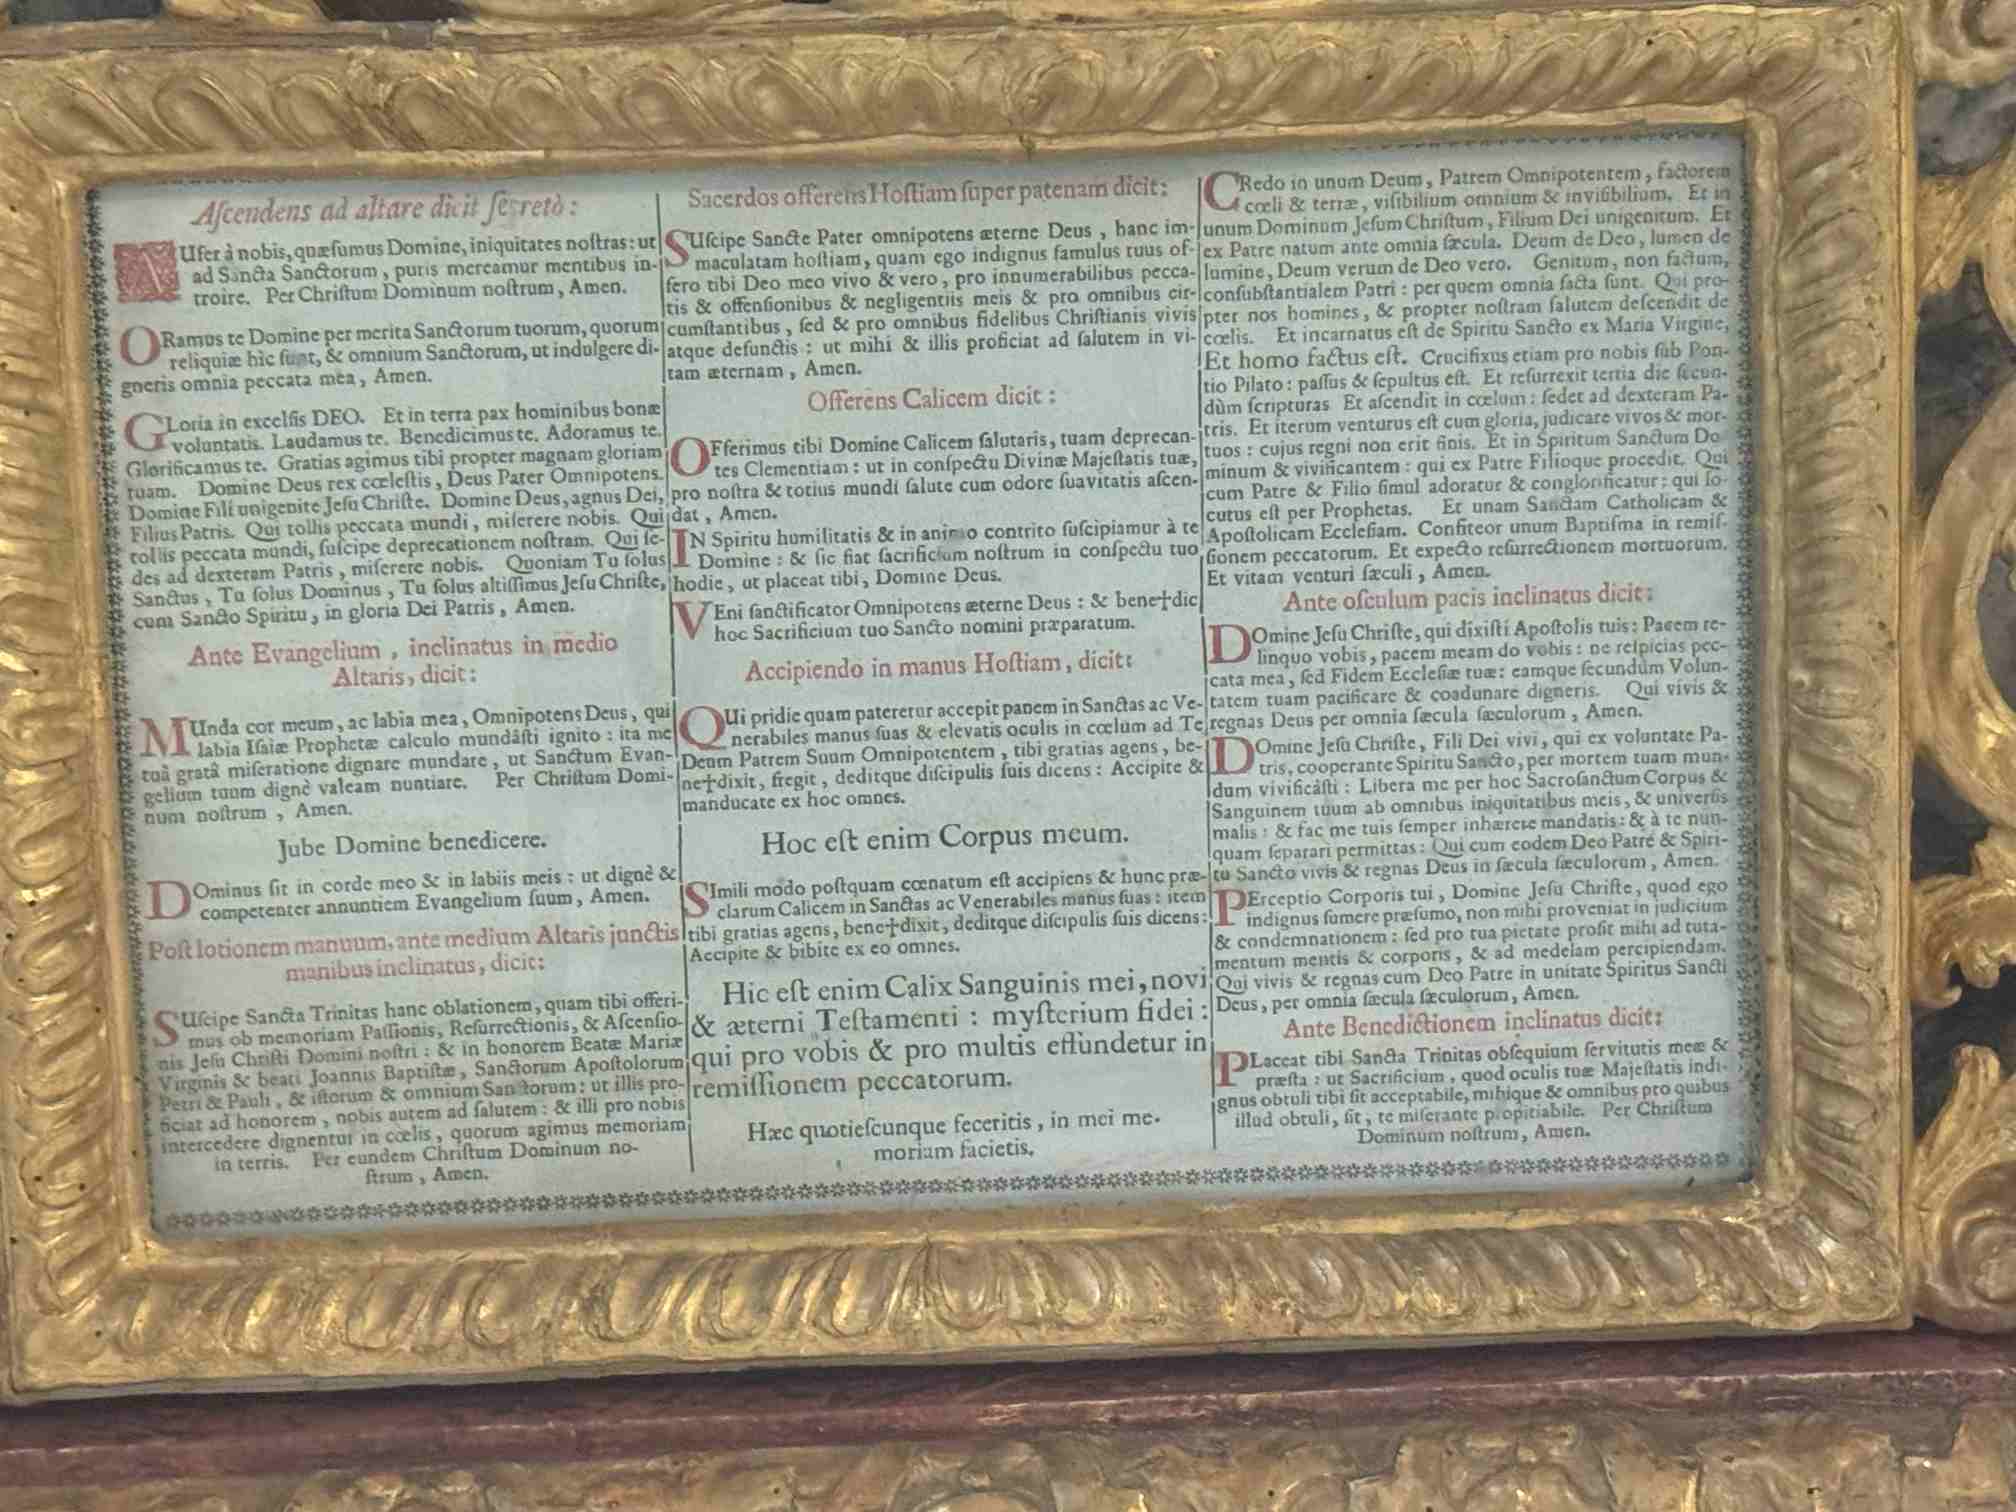 Aſcendens ad altare dicit ſecretò:
AUfer à nobis, quæſumus Domine, iniquitates noſtras: ut
ad Sancta Sanctorum, puris mereamur mentibus in-
troire. Per Chriſtum Dominum noſtrum, Amen.
ORamus te Domine per merita Sanctorum tuorum, quorum
reliquiæ hìc ſunt, & omnium Sanctorum, ut indulgere di-
gneris omnia peccata mea, Amen.
GLoria in excelſis DEO. Et in terra pax hominibus bonæ
voluntatis. Laudamus te. Benedicimus te. Adoramus te.
Glorificamus te. Gratias agimus tibi propter magnam gloriam
tuam. Domine Deus rex cœleſtis, Deus Pater Omnipotens.
Domine Fili unigenite Jeſu Chriſte. Domine Deus, agnus Dei,
Filius Patris. Qui tollis peccata mundi, miſerere nobis. Qui
tollis peccata mundi, ſuſcipe deprecationem noſtram. Qui ſe-
des ad dexteram Patris, miſerere nobis. Quoniam Tu ſolus
Sanctus, Tu ſolus Dominus, Tu ſolus altiſſimus Jeſu Chriſte,
cum Sancto Spiritu, in gloria Dei Patris, Amen.
Ante Evangelium, inclinatus in medio
Altaris, dicit:
MUnda cor meum, ac labia mea, Omnipotens Deus, qui
labia Iſaiæ Prophetæ calculo mundâſti ignito: ita me
tuâ gratâ miſeratione dignare mundare, ut Sanctum Evan-
gelium tuum dignè valeam nuntiare. Per Chriſtum Domi-
num noſtrum, Amen.
Jube Domine benedicere.
DOminus ſit in corde meo & in labiis meis: ut dignè &
competenter annuntiem Evangelium ſuum, Amen.
Poſt lotionem manuum, ante medium Altaris junctis
manibus inclinatus, dicit:
SUſcipe Sancta Trinitas hanc oblationem, quam tibi offeri-
mus ob memoriam Paſſionis, Reſurrectionis, & Aſcenſio-
nis Jeſu Chriſti Domini noſtri: & in honorem Beatæ Mariæ
Virginis & beati Joannis Baptiſtæ, Sanctorum Apoſtolorum
Petri & Pauli, & iſtorum & omnium Sanctorum: ut illis pro-
ficiat ad honorem, nobis autem ad ſalutem: & illi pro nobis
intercedere dignentur in cœlis, quorum agimus memoriam
in terris. Per eundem Chriſtum Dominum no-
ſtrum, Amen.
Sacerdos offerens Hoſtiam ſuper patenam dicit:
SUſcipe Sancte Pater omnipotens æterne Deus, hanc im-
maculatam hoſtiam, quam ego indignus famulus tuus of-
fero tibi Deo meo vivo & vero, pro innumerabilibus pecca-
tis & offenſionibus & negligentiis meis & pro omnibus cir-
cumſtantibus, ſed & pro omnibus fidelibus Chriſtianis vivis
atque defunctis: ut mihi & illis proficiat ad ſalutem in vi-
tam æternam, Amen.
Offerens Calicem dicit:
OFferimus tibi Domine Calicem ſalutaris, tuam deprecan-
tes Clementiam: ut in conſpectu Divinæ Majeſtatis tuæ,
pro noſtra & totius mundi ſalute cum odore ſuavitatis aſcen-
dat, Amen.
IN Spiritu humilitatis & in animo contrito ſuſcipiamur à te
Domine: & ſic fiat ſacrificium noſtrum in conſpectu tuo
hodie, ut placeat tibi, Domine Deus.
VEni ſanctificator Omnipotens æterne Deus: & bene†dic
hoc Sacrificium tuo Sancto nomini præparatum.
Accipiendo in manus Hoſtiam, dicit:
QUi pridie quam pateretur accepit panem in Sanctas ac Ve-
nerabiles manus ſuas & elevatis oculis in cœlum ad Te
Deum Patrem Suum Omnipotentem, tibi gratias agens, be-
ne†dixit, fregit, deditque diſcipulis ſuis dicens: Accipite &
manducate ex hoc omnes.
Hoc eſt enim Corpus meum.
SImili modo poſtquam cœnatum eſt accipiens & hunc præ-
clarum Calicem in Sanctas ac Venerabiles manus ſuas: item
tibi gratias agens, bene†dixit, deditque diſcipulis ſuis dicens:
Accipite & bibite ex eo omnes.
Hic eſt enim Calix Sanguinis mei, novi
& æterni Teſtamenti: myſterium fidei:
qui pro vobis & pro multis effundetur in
remiſſionem peccatorum.
Hæc quotieſcunque feceritis, in mei me-
moriam facietis.
CRedo in unum Deum, Patrem Omnipotentem, factorem
cœli & terræ, viſibilium omnium & inviſibilium. Et in
unum Dominum Jeſum Chriſtum, Filium Dei unigenitum. Et
ex Patre natum ante omnia ſæcula. Deum de Deo, lumen de
lumine, Deum verum de Deo vero. Genitum, non factum,
conſubſtantialem Patri: per quem omnia facta ſunt. Qui pro-
pter nos homines, & propter noſtram ſalutem deſcendit de
cœlis. Et incarnatus eſt de Spiritu Sancto ex Maria Virgine,
Et homo factus eſt. Crucifixus etiam pro nobis ſub Pon-
tio Pilato: paſſus & ſepultus eſt. Et reſurrexit tertia die ſecun-
dùm ſcripturas. Et aſcendit in cœlum: ſedet ad dexteram Pa-
tris. Et iterum venturus eſt cum gloria, judicare vivos & mor-
tuos: cujus regni non erit finis. Et in Spiritum Sanctum Do
minum & vivificantem: qui ex Patre Filioque procedit. Qui
cum Patre & Filio ſimul adoratur & conglorificatur: qui lo-
cutus eſt per Prophetas. Et unam Sanctam Catholicam &
Apoſtolicam Eccleſiam. Confiteor unum Baptiſma in remiſ-
ſionem peccatorum. Et expecto reſurrectionem mortuorum.
Et vitam venturi ſæculi, Amen.
Ante oſculum pacis inclinatus dicit:
DOmine Jeſu Chriſte, qui dixiſti Apoſtolis tuis: Pacem re-
linquo vobis, pacem meam do vobis: ne reſpicias pec-
cata mea, ſed Fidem Eccleſiæ tuæ: eamque ſecundùm Volun-
tatem tuam pacificare & coadunare digneris. Qui vivis &
regnas Deus per omnia ſæcula ſæculorum, Amen.
DOmine Jeſu Chriſte, Fili Dei vivi, qui ex voluntate Pa-
tris, cooperante Spiritu Sancto, per mortem tuam mun-
dum vivificâſti: Libera me per hoc Sacroſanctum Corpus &
Sanguinem tuum ab omnibus iniquitatibus meis, & univerſis
malis: & fac me tuis ſemper inhærere mandatis: & à te nun-
quam ſeparari permittas: Qui cum eodem Deo Patre & Spiri-
tu Sancto vivis & regnas Deus in ſæcula ſæculorum, Amen.
PErceptio Corporis tui, Domine Jeſu Chriſte, quod ego
indignus ſumere præſumo, non mihi proveniat in judicium
& condemnationem: ſed pro tua pietate proſit mihi ad tuta-
mentum mentis & corporis, & ad medelam percipiendam.
Qui vivis & regnas cum Deo Patre in unitate Spiritus Sancti
Deus, per omnia ſæcula ſæculorum, Amen.
Ante Benedictionem inclinatus dicit:
PLaceat tibi Sancta Trinitas obſequium ſervitutis meæ &
præſta: ut Sacrificium, quod oculis tuæ Majeſtatis indi-
gnus obtuli tibi ſit acceptabile, mihique & omnibus pro quibus
illud obtuli, ſit, te miſerante propitiabile. Per Chriſtum
Dominum noſtrum, Amen.